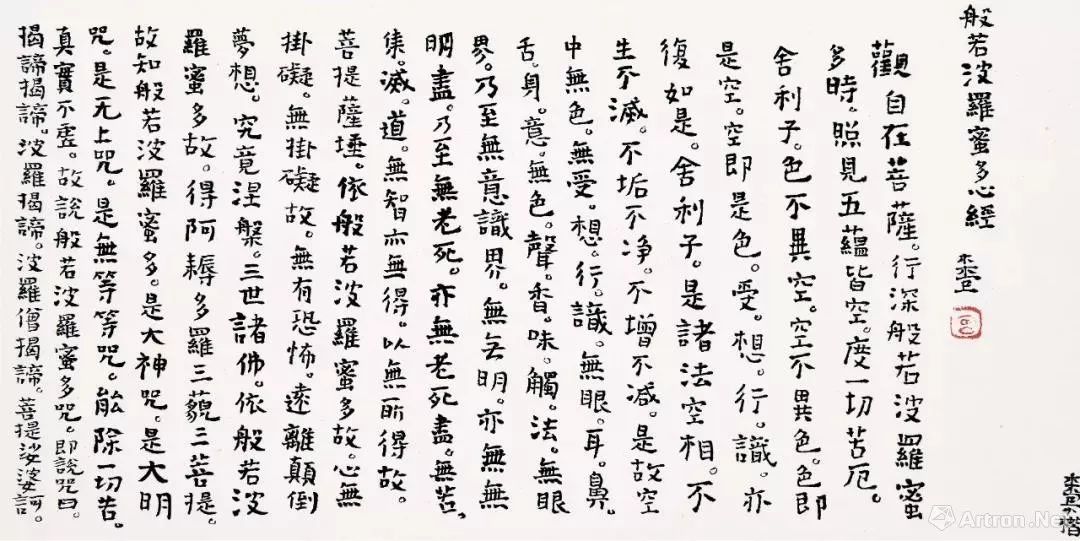 般若波羅蜜多心經
觀自在菩薩。行深般若波羅蜜
多時。照見五蘊皆空。度一切苦厄。
舍利子。色不異空。空不異色。色即
是空。空即是色。受。想。行。識。亦
復如是。舍利子。是諸法空相。不
生不滅。不垢不净。不增不減。是故空
中無色。無受。想。行。識。無眼。耳。鼻。
舌。身。意。無色。聲。香。味。觸。法。無眼
界。乃至無意識界。無无明。亦無無
明盡。乃至無老死。亦無老死盡。無苦、
集。滅。道。無智亦無得。以無所得故。
菩提薩埵。依般若波羅蜜多故。心無
掛礙。無掛礙故。無有恐怖。遠離顛倒
夢想。究竟涅槃。三世諸佛。依般若波
羅蜜多故。得阿耨多羅三藐三菩提。
故知般若波羅蜜多。是大神咒。是大明
咒。是无上咒。是無等等咒。能除一切苦。
真實不虛。故說般若波羅蜜多咒。即說咒曰。
揭諦揭諦。波羅揭諦。波羅僧揭諦。菩提娑婆訶。
Artron.Net